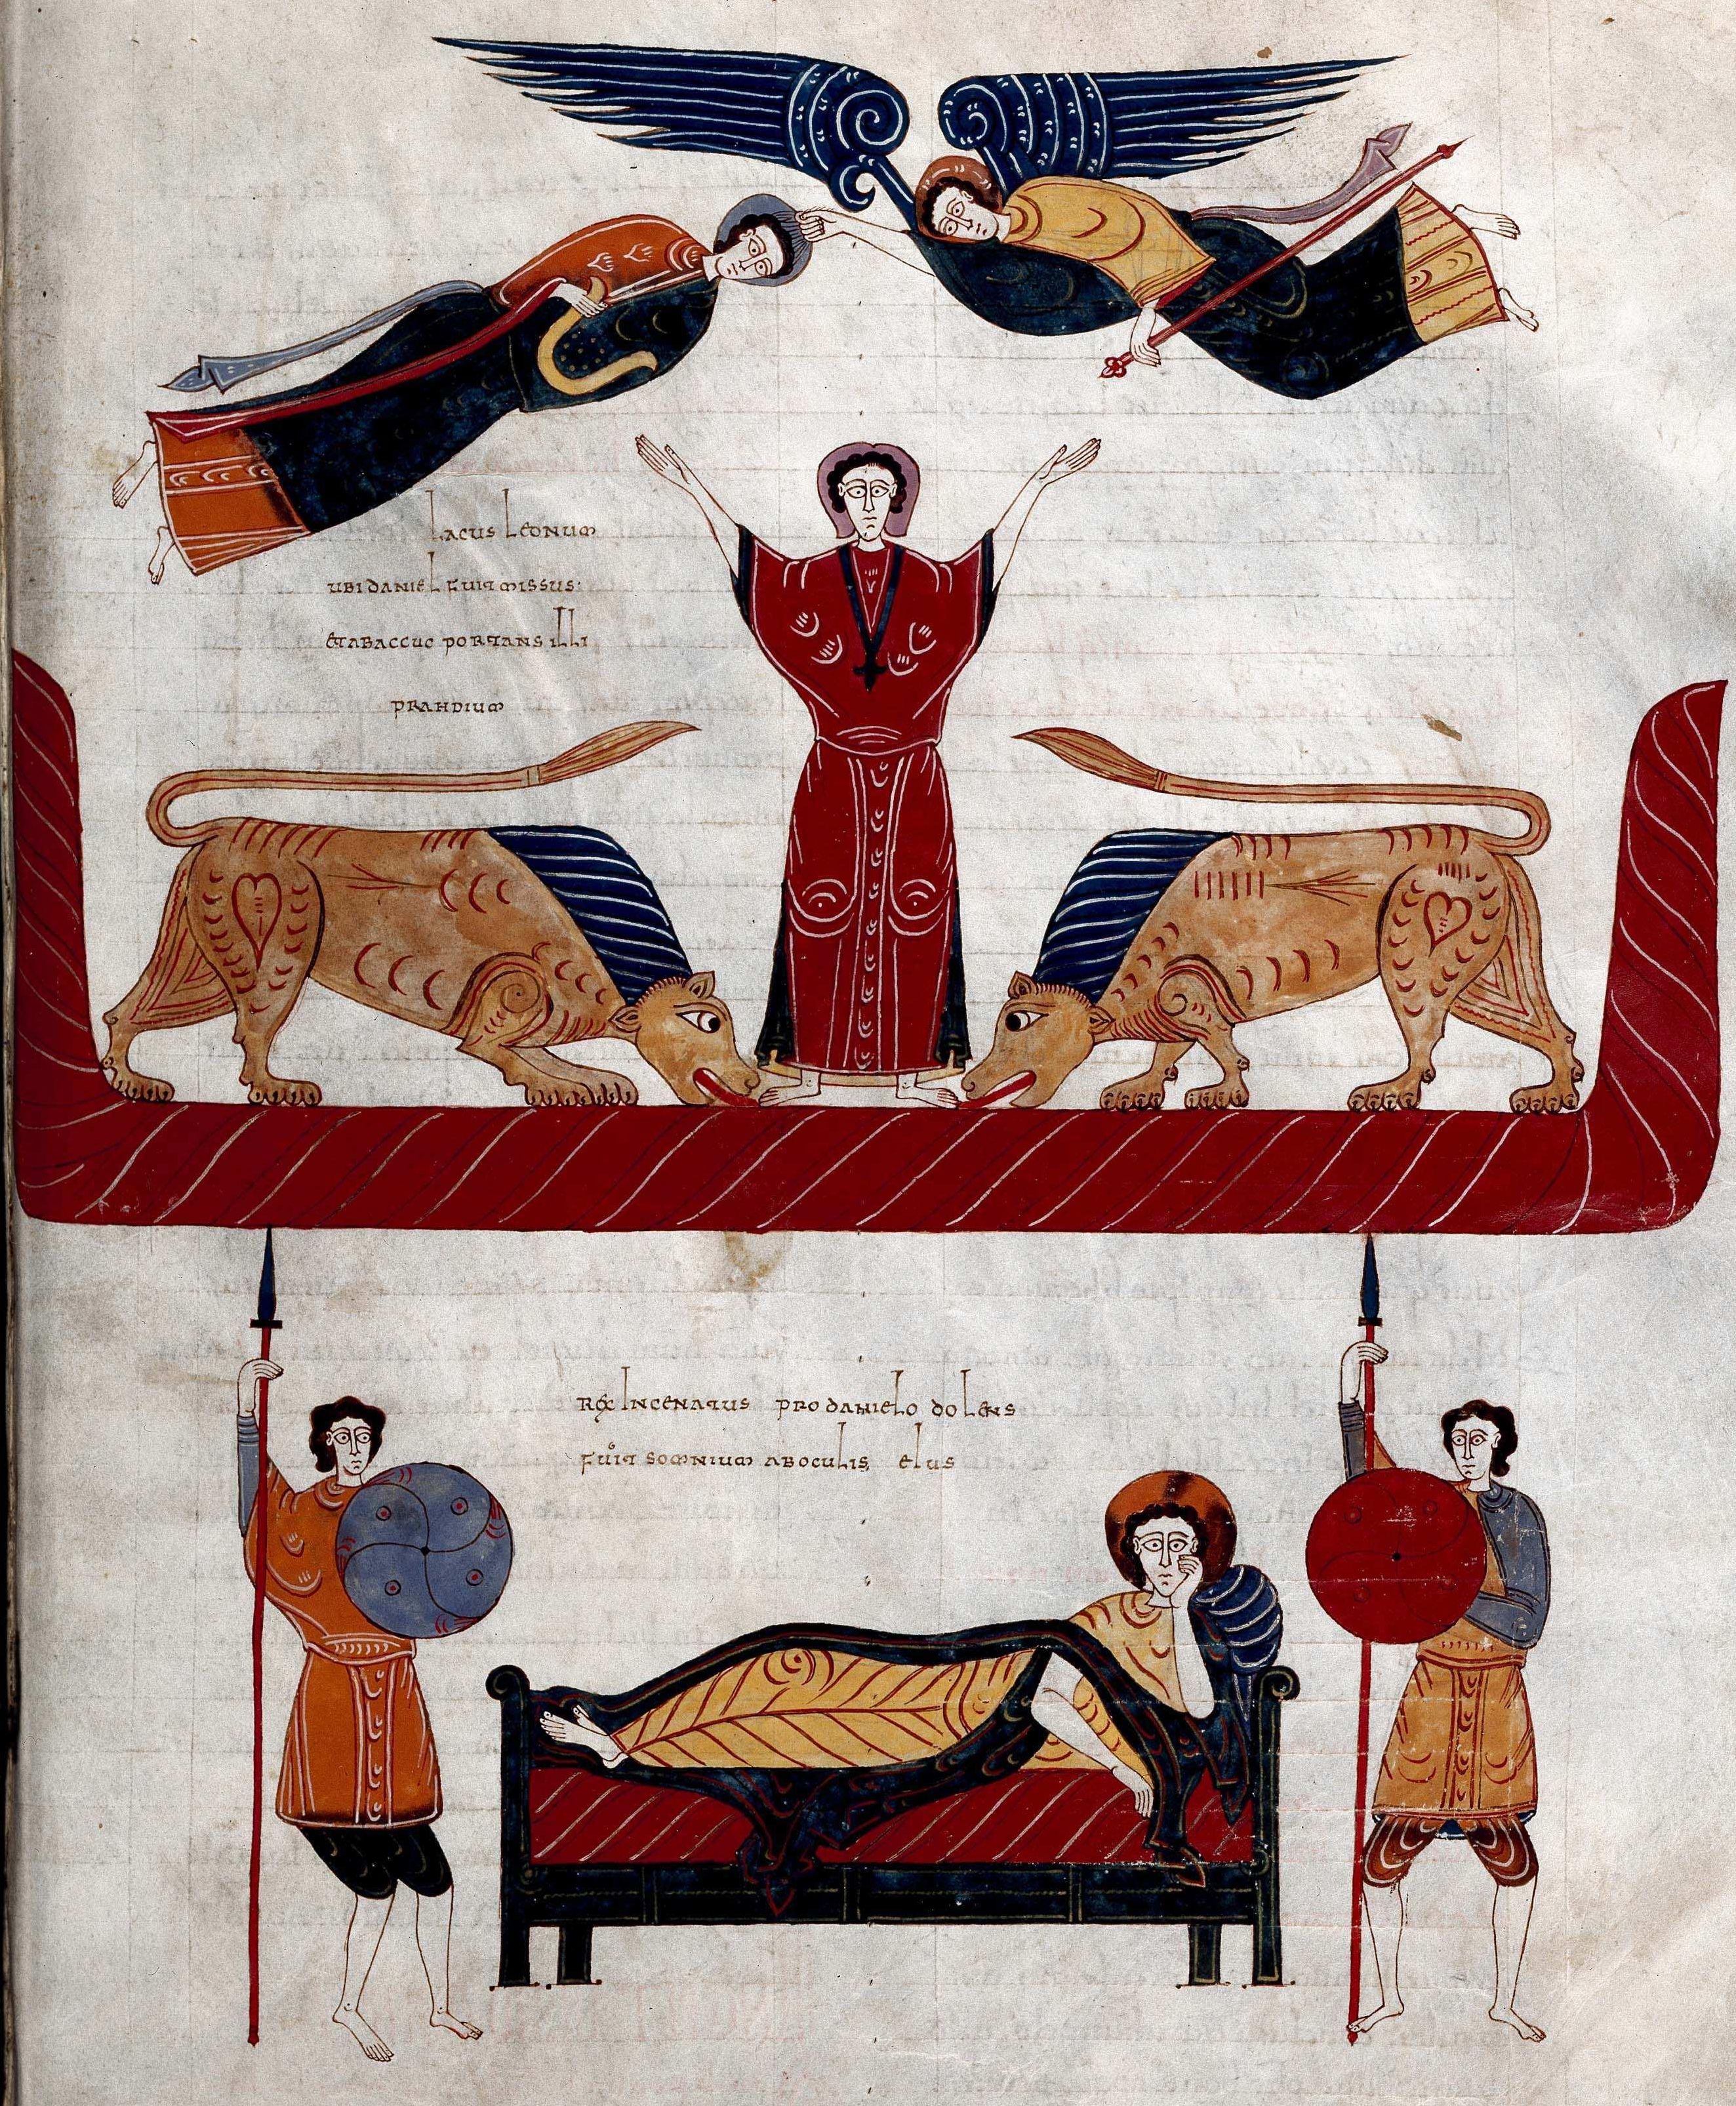 Lacus Leonum
ubi daniel fuit missus:
et abaccuc portans illi
prandium
Rex Incenatus pro danielo dolens
fuit somnium ab oculis eius